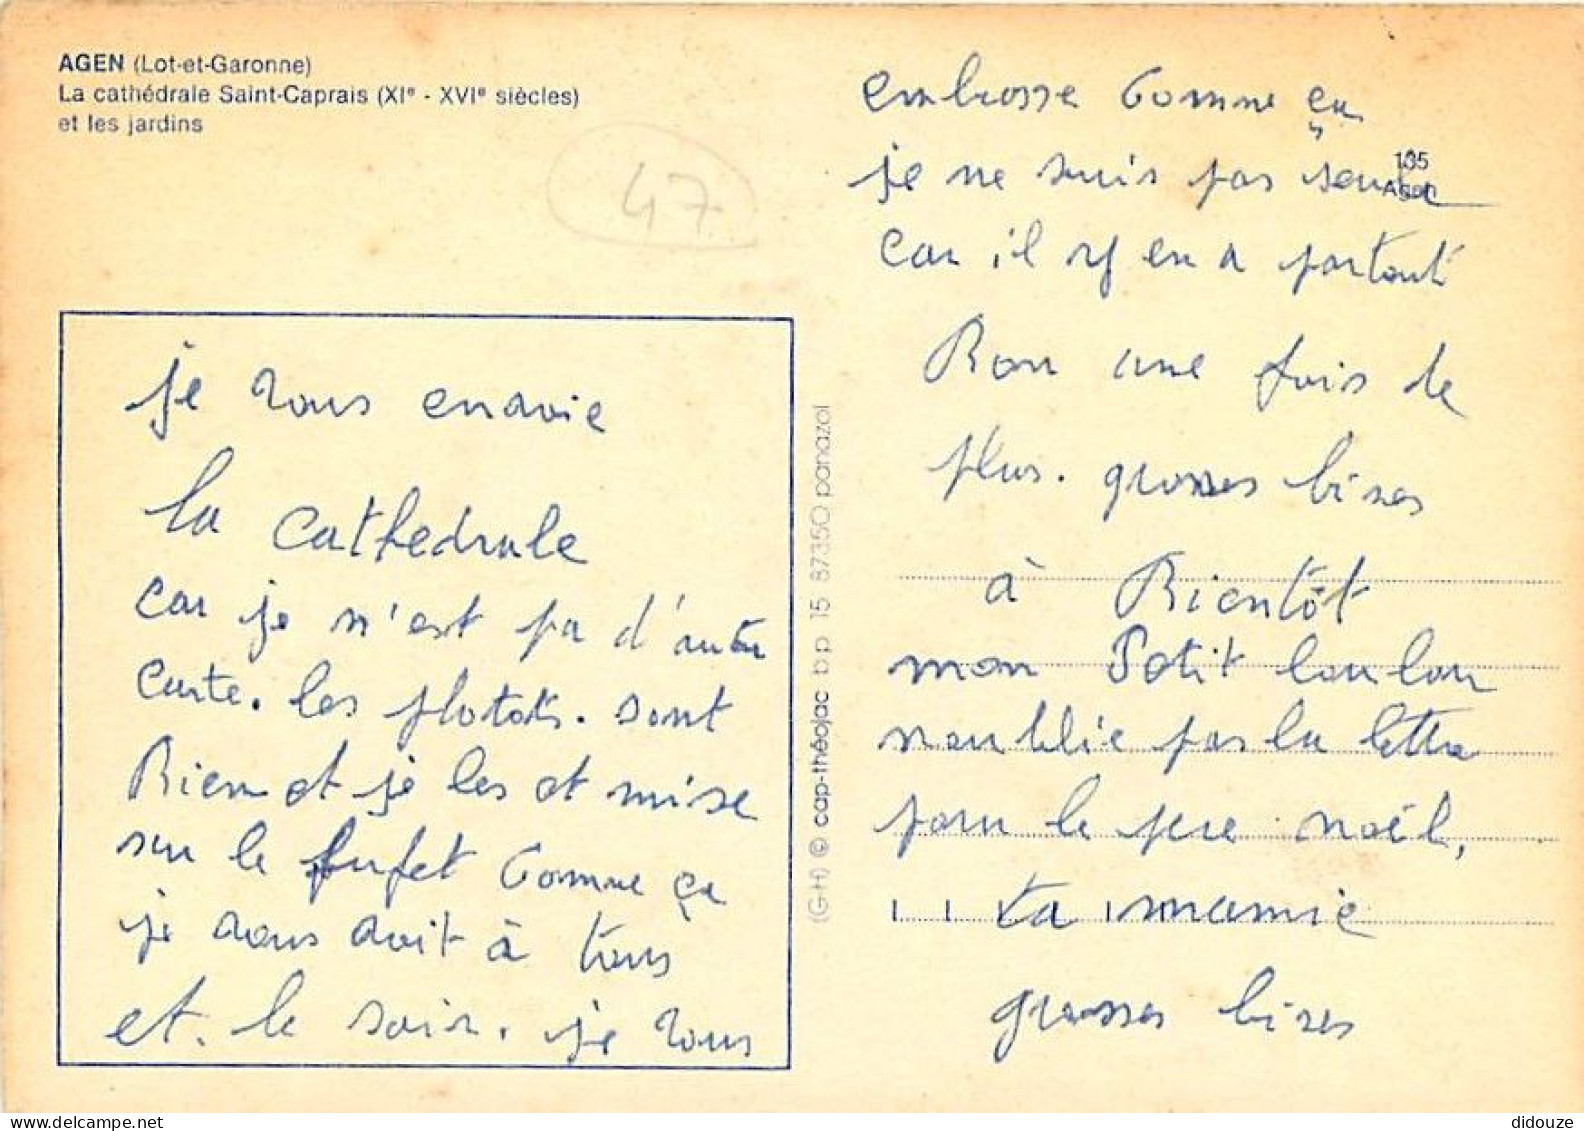 AGEN (Lot-et-Garonne)
La cathédrale Saint-Caprais (XIe - XVIe siècles)
et les jardins
47
je vous envoie
la cathedrale
car je n'est pa d'autre
carte. les photots. sont
Bien et je les et mise
sur le fufet Comme ça
je vous voit à tous
et. le soir. je vous
(G-H) © cap-théojac b p 15 87350 panazol
135
Agen
embrosse Comme ça
je ne suis pas seule
car il y en a partout
Bon une fois de
plus. grosses bises
à Bientôt
mon Petit loulou
noublie pas la lettre
pour le pere noël,
ta mamie
grosses bises
delcampe.net
didouze